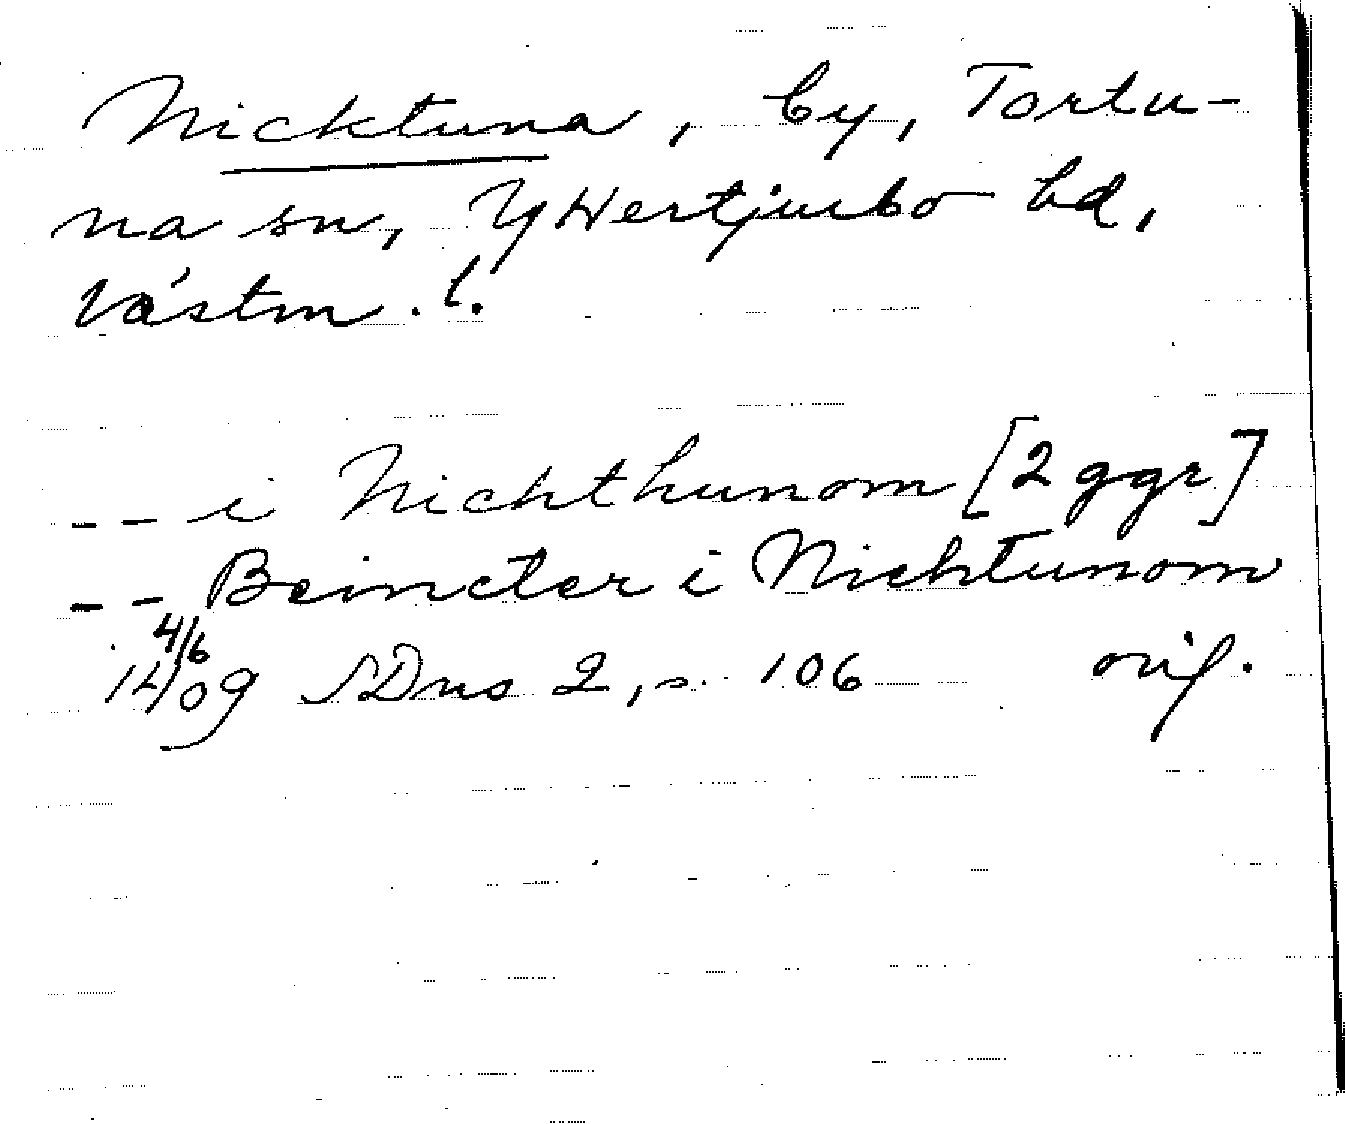 Nicktuna, by, Tortu-
na sn, Yttertjurbo hd,
Västm. l.
-- i Nichthunom [2 ggr]
-- Beincter i Nichtunom
4/6
1409 SDns 2, s. 106 orig.